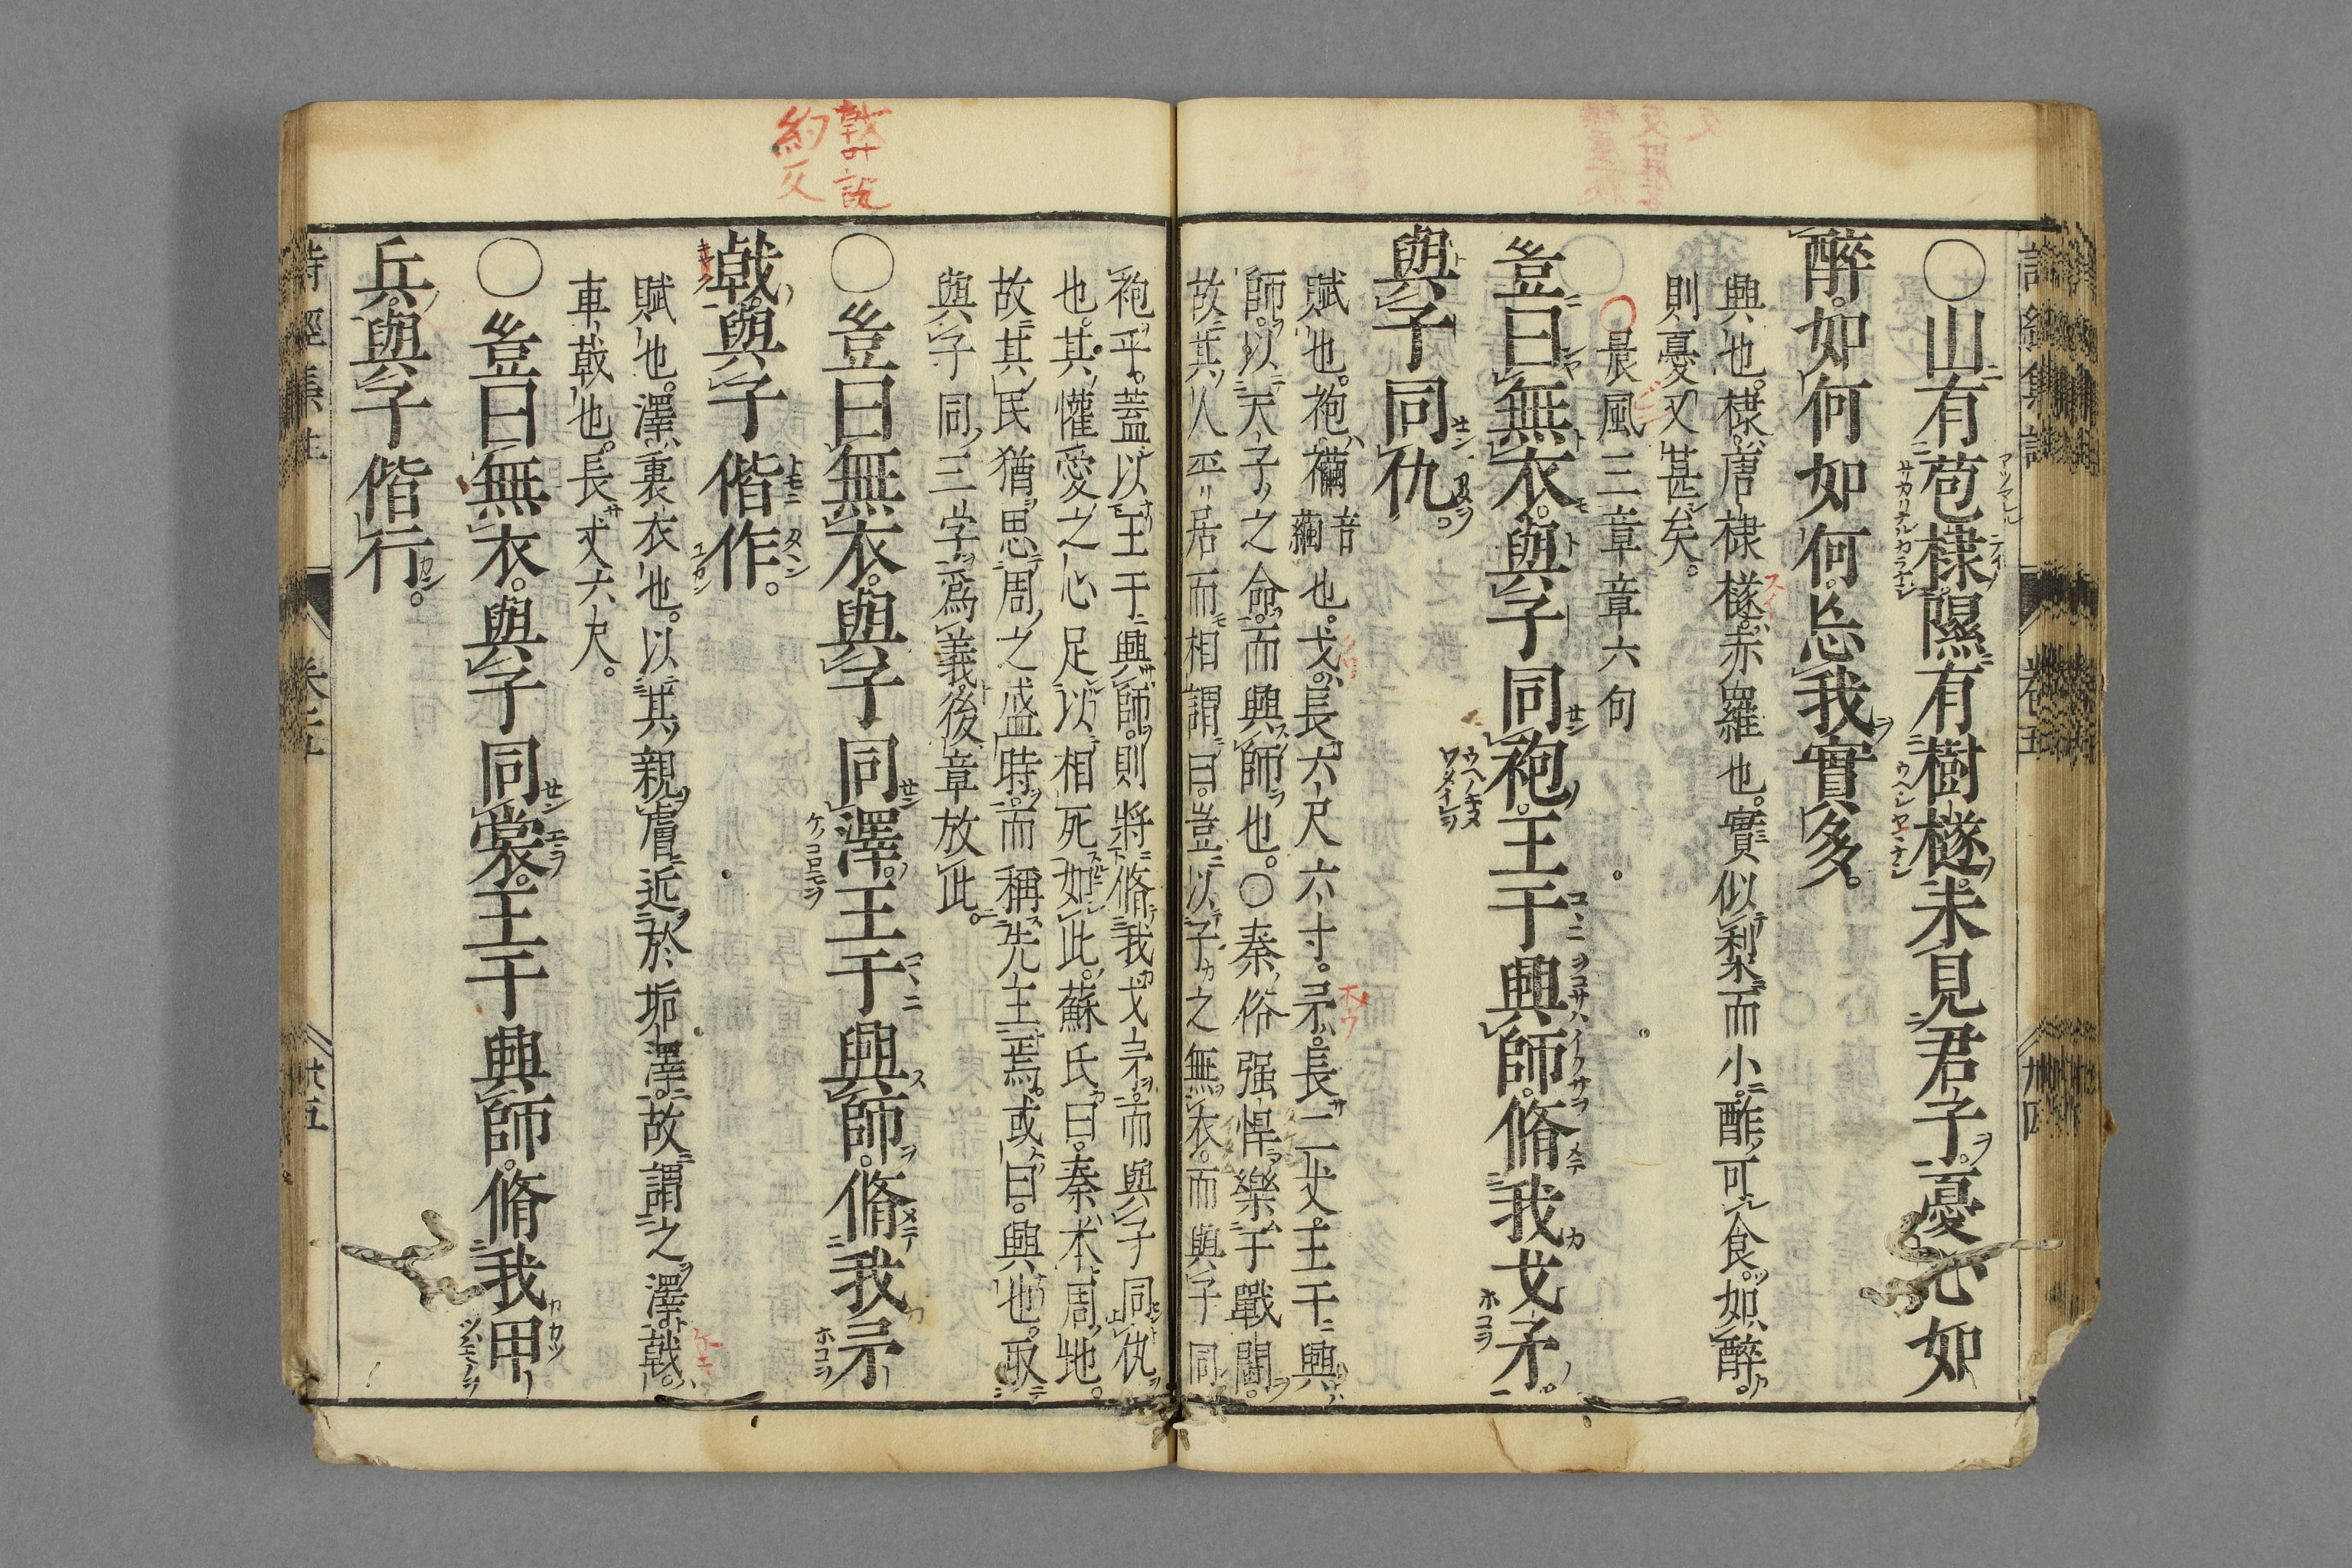 ○山有苞棣。隰有樹檖。未見君子。憂心如
醉。如何如何。忘我實多。
興也。棣。唐棣。檖。赤羅也。實似梨而小。酢可食。如醉。
則憂又甚矣。
晨風三章章六句
豈曰無衣。與子同袍。王于興師。脩我戈矛。
與子同仇。
賦也。袍。襺音繭也。戈。長六尺六寸。矛。長二丈。王于興
師。以天子之命。而興師也。○秦俗强悍。樂于戰鬪。
故其人平居而相謂曰。豈以子之無衣。而與子同
袍乎。蓋以王于興師。則將脩我戈矛。而與子同仇
也。其懽愛之心。足以相死如此。蘇氏曰。秦本周地。
故其民猶思周之盛時。而稱先王焉。或曰。興也。取
與子同三字為義。後章放此。
○豈曰無衣。與子同澤。王于興師。脩我矛
戟。與子偕作。
賦也。澤裏衣也。以其親膚近於垢澤。故謂之澤。戟。
車戟也。長丈六尺。
○豈曰無衣。與子同裳。王于興師。脩我甲
兵。與子偕行。
詩經集註
卷五
卅四
詩經集註
卷五
卅五